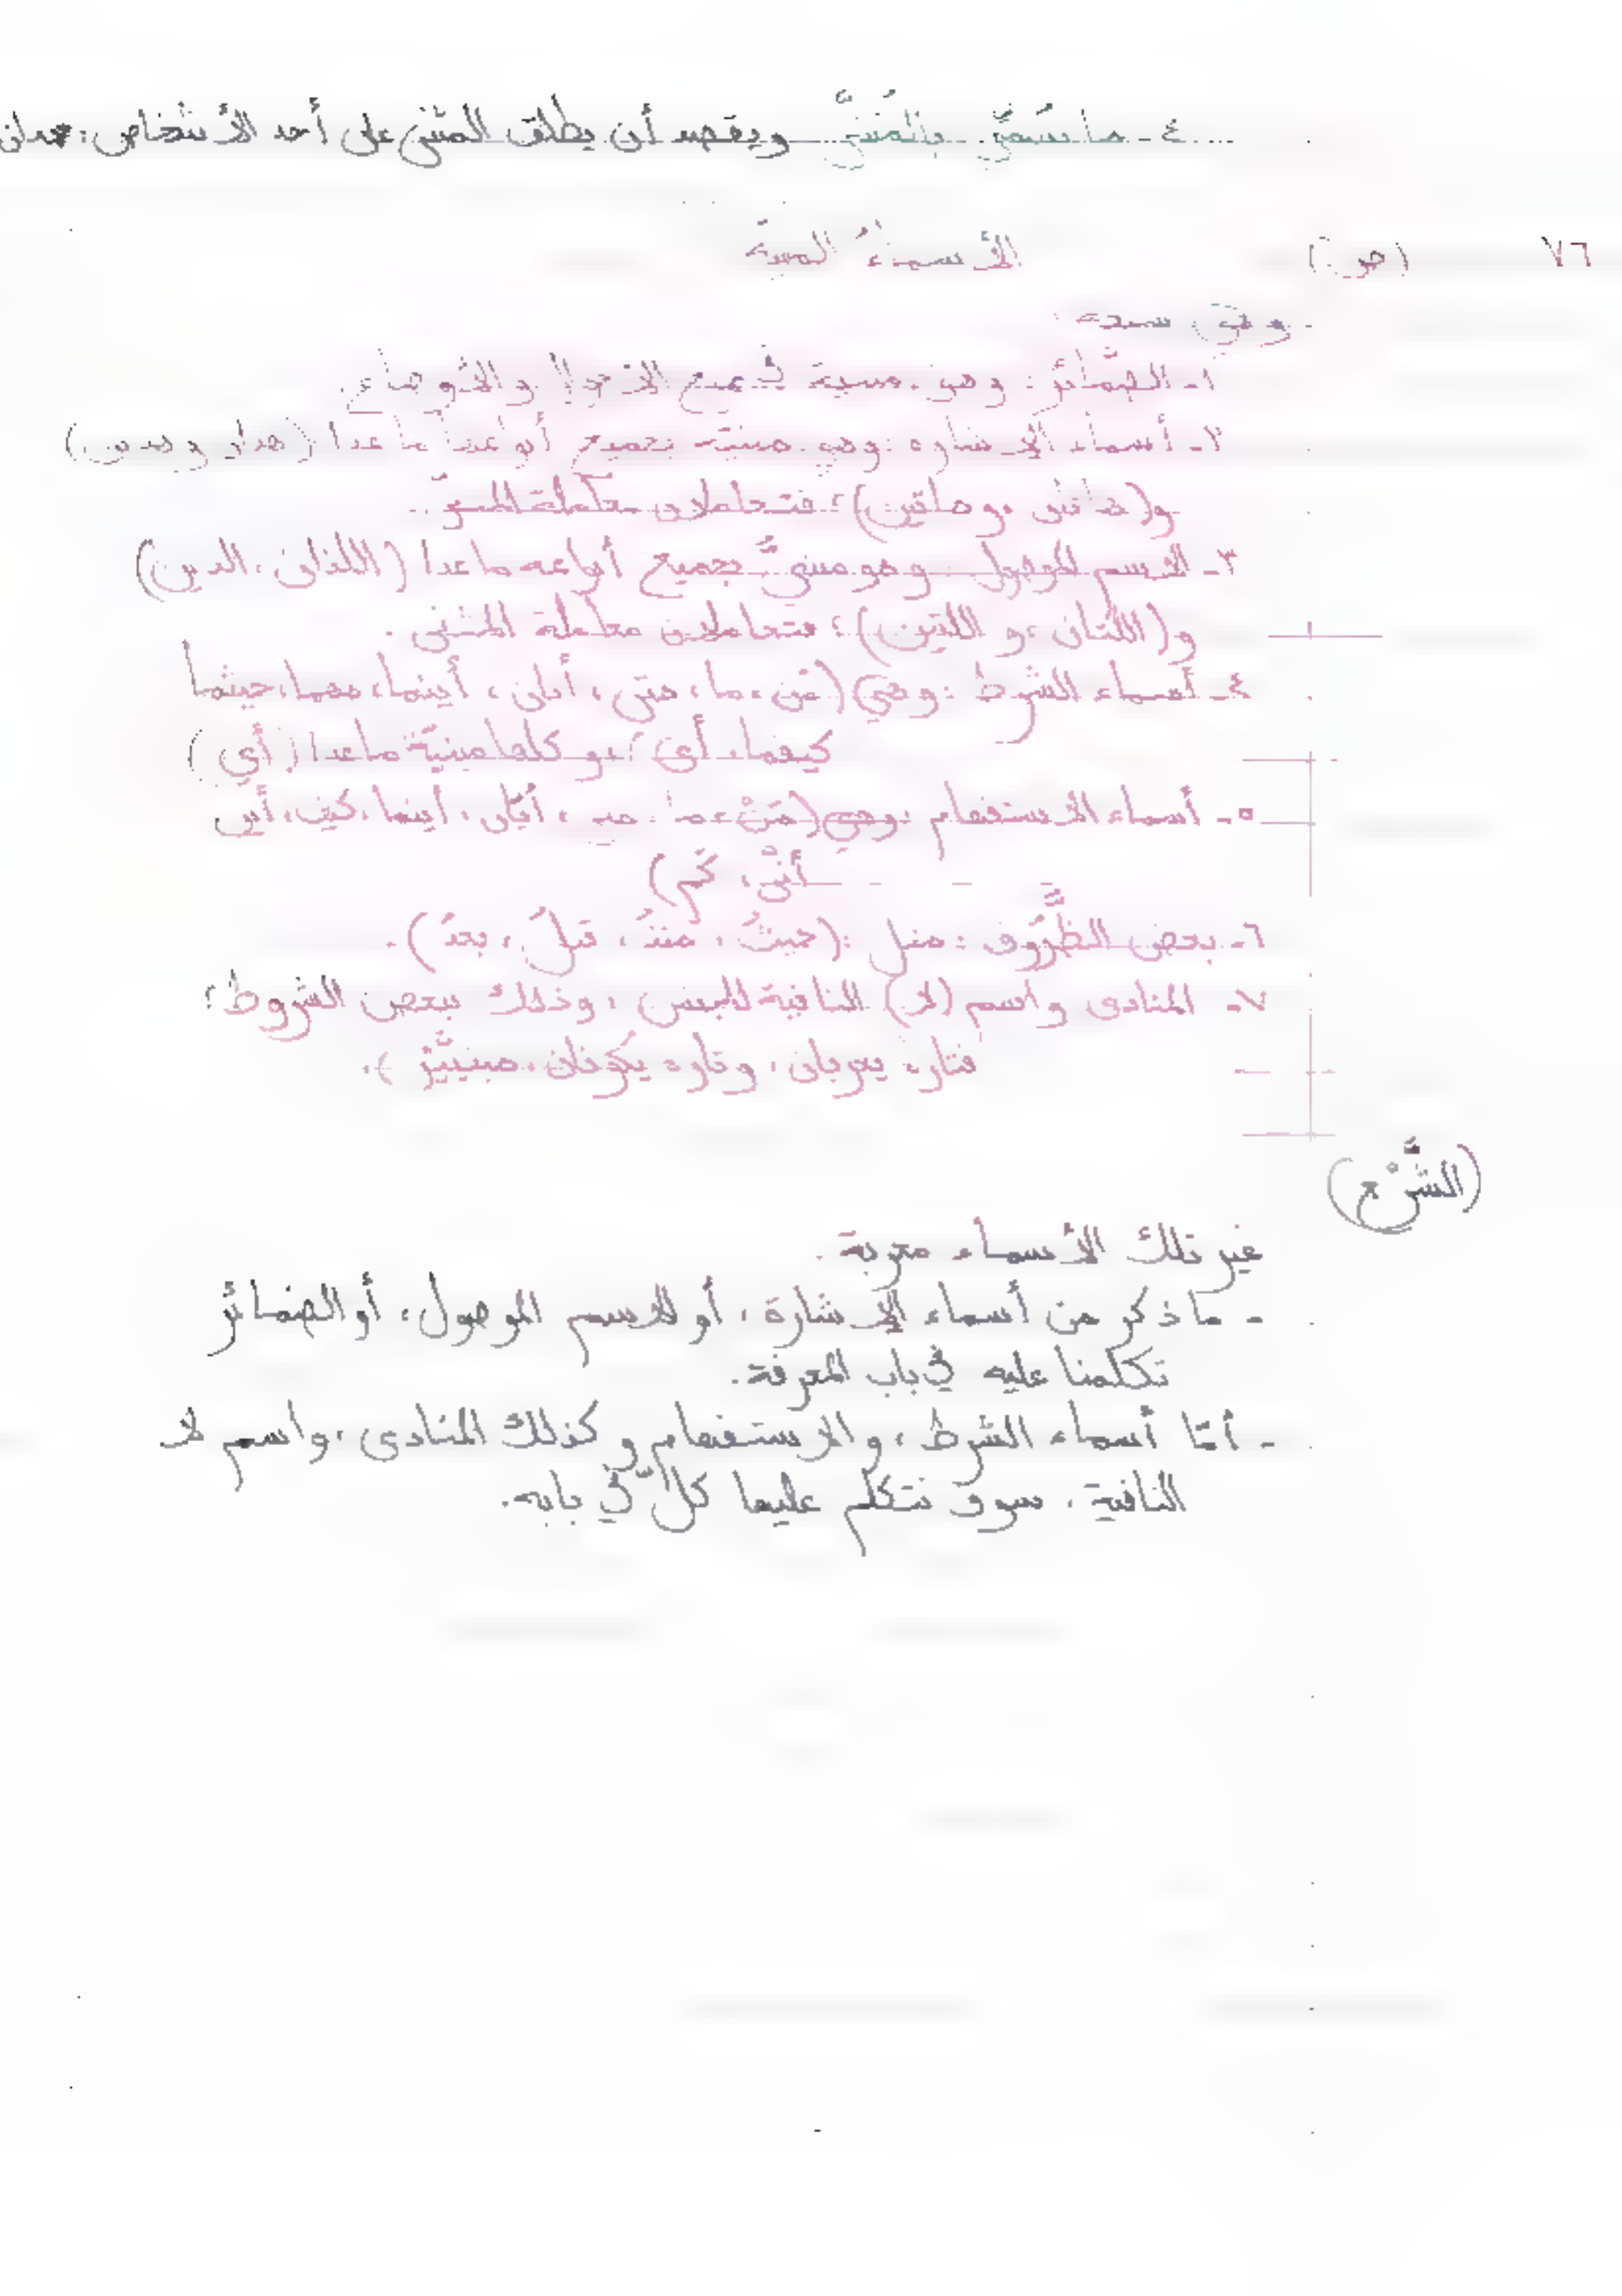 ٤- ما سُمّيَ بالمُثنّى ويقصد أن يطلق المثنى على أحد الأشخاص: حمدان
٧٦ (ص) الأسماءُ المبنية
وهي سبعة
١- الضّمائر: وهي مبنية في جميع الأحوال والأوضاع.
٢- أسماء الإشارة: وهي مبنيّة بجميع أنواعها ما عدا (هذان وهذين)
و(هاتان وهاتين)؛ فتعاملان معاملة المثنّى.
٣- الاسم الموصول وهو مبنيّ بجميع أنواعه ما عدا (اللذان، الذين)
و(اللّتان، و اللتين)؛ فتعاملان معاملة المثنى.
٤- أسماء الشرط: وهي (مَن، ما، متى، أيان، أينما، مهما، حيثما
كيفما، أي)، وكلها مبنيّة ما عدا (أي)
٥- أسماء الاستفهام: وهي (مَنْ، ما، متى، أيّان، أينما، كيف، أين
أنّى، كَم)
٦- بعض الظُّرُوف: مثل: (حيثُ، منذُ، قبلُ، بعدُ).
٧- المنادى واسم (لا) النافية للجنس، وذلك ببعض الشروط؛
فتارة يعربان، وتارة يكونان مبنيّين).
(الشَّرْح)
غير تلك الأسماء معربة.
- ما ذكر من أسماء الإشارة، أو الاسم الموصول، أو الضمائر
تكلمنا عليه في باب المعرفة.
- أمّا أسماء الشرط، والاستفهام وكذلك المنادى، واسم لا
النافية، سوف نتكلم عليها كلٌّ في بابه.